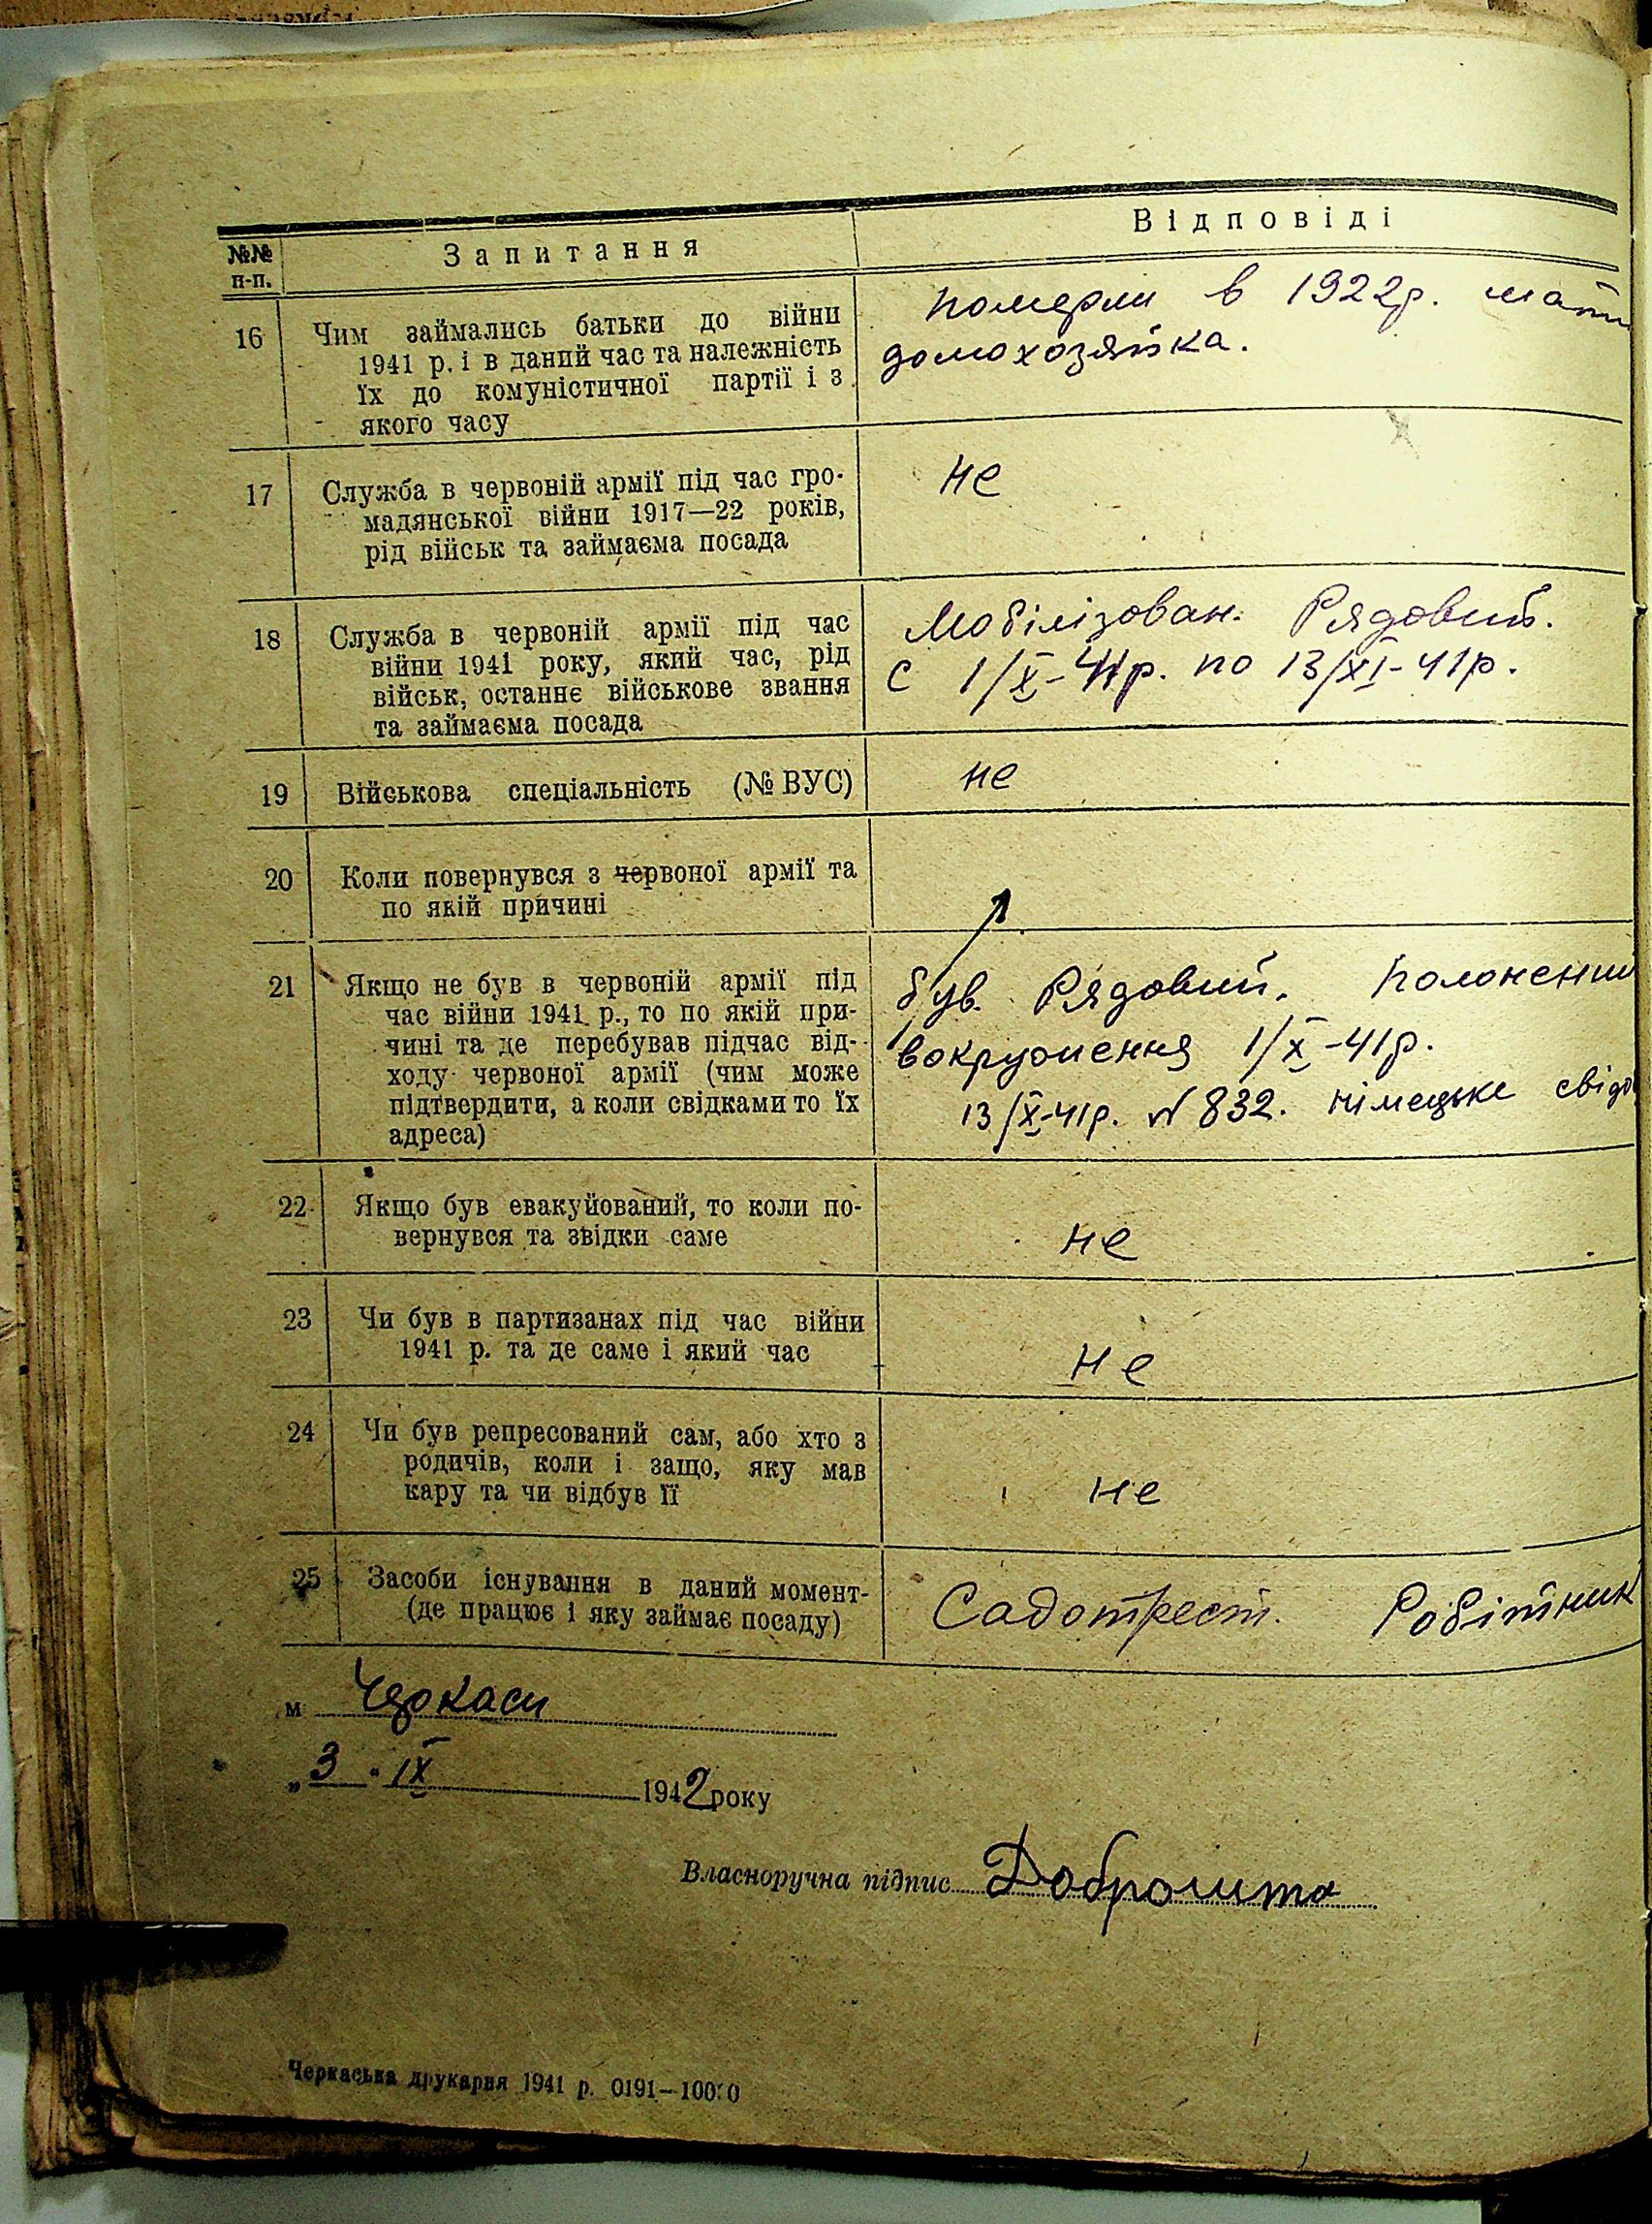 №№ п-п.
Запитання
Відповіді
16
Чим займались батьки до війни
1941 р. і в даний час та належність
їх до комуністичної партії і з
якого часу
померли в 1922р. мати
домохозяйка.
17
Служба в червоній армії під час гро-
мадянської війни 1917—22 років,
рід військ та займаєма посада
не
18
Служба в червоній армії під час
війни 1941 року, який час, рід
військ, останнє військове звання
та займаєма посада
Мобілізован. Рядовий.
с 1/X-41р. по 13/XI-41р.
19
Військова спеціальність (№ ВУС)
не
20
Коли повернувся з червоної армії та
по якій причині
21
Якщо не був в червоній армії під
час війни 1941 р., то по якій при-
чині та де перебував підчас від-
ходу червоної армії (чим може
підтвердити, а коли свідками то їх
адреса)
був. Рядовий. Полонений
вокруження 1/X-41р.
13/X-41р. N 832. німецьке свідо
22
Якщо був евакуйований, то коли по-
вернувся та звідки саме
не
23
Чи був в партизанах під час війни
1941 р. та де саме і який час
не
24
Чи був репресований сам, або хто з
родичів, коли і защо, яку мав
кару та чи відбув її
не
25
Засоби існування в даний момент-
(де працює і яку займає посаду)
Садотрест. Робітник
м Черкаси
„3" IX 1942 року
Власноручна підпис
Черкаська друкарня 1941 р. 0191—10000